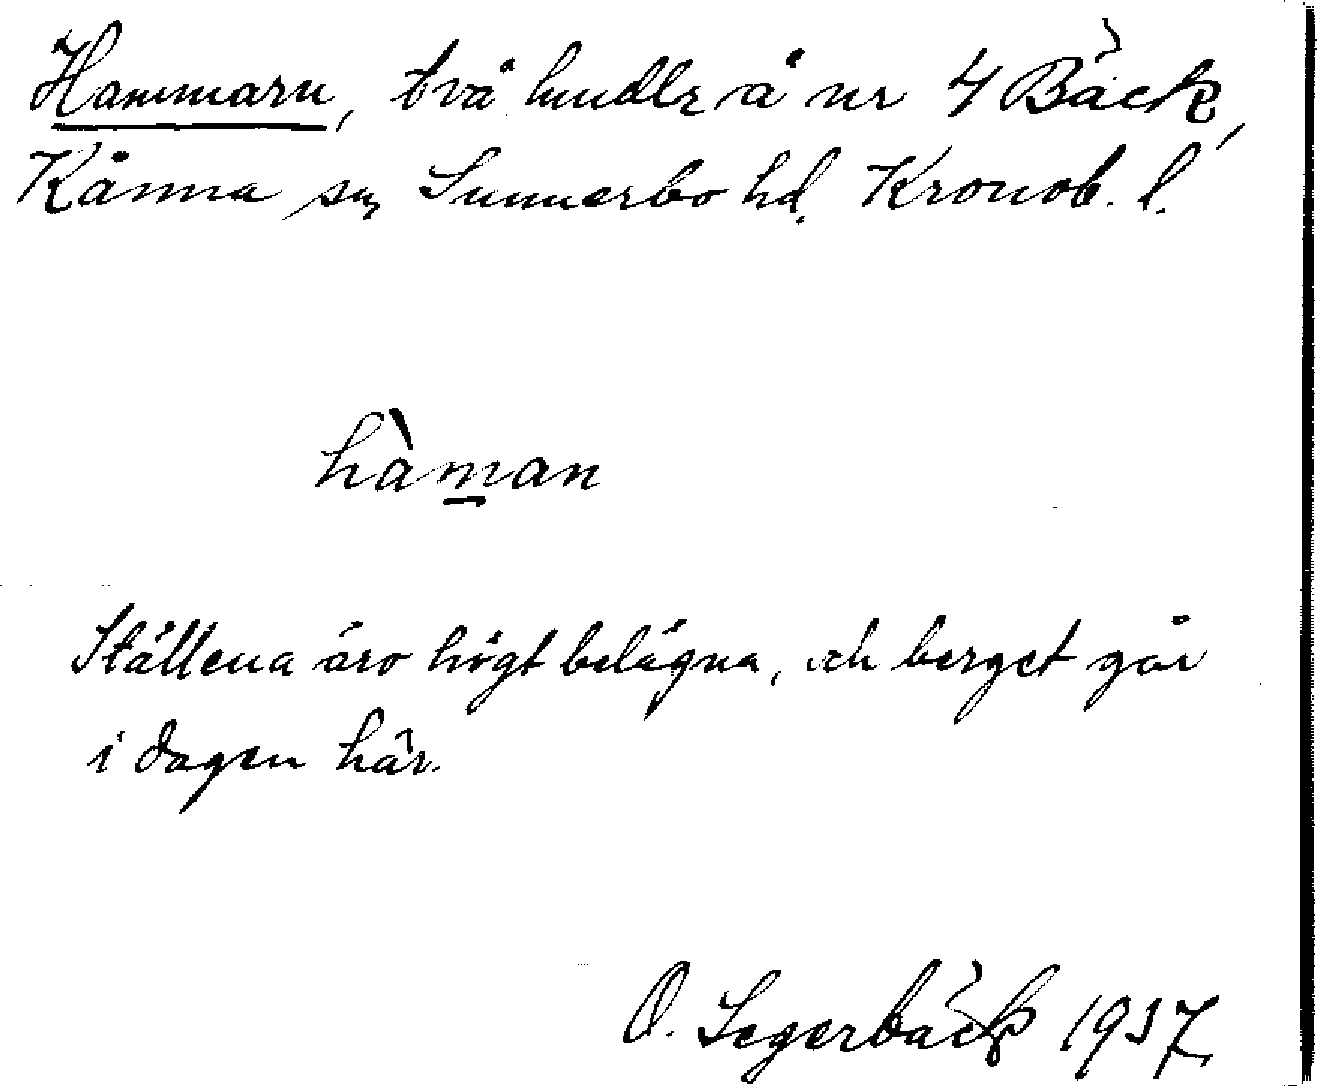 Hammarn, två hmdlr å nr 4 Bäck,
Kånna sn, Sunnerbo hd. Kronob. l.
hàman
Ställena äro högt belägna, och berget går
i dagen här.
O. Segerbäck 1937.